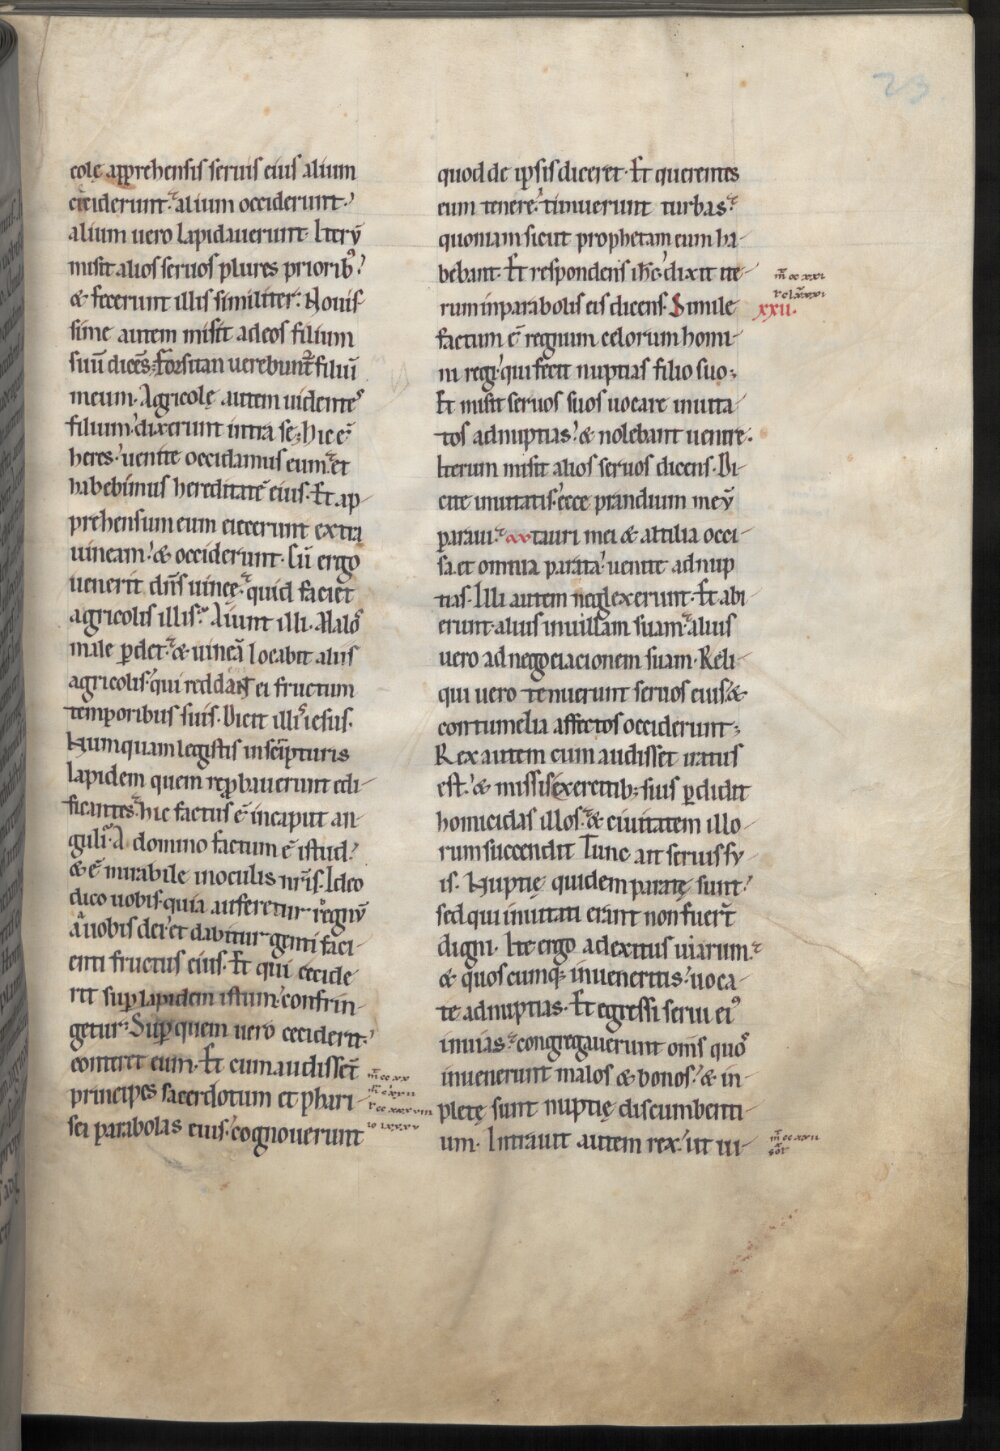 colę apprehensis seruis eius alium
ceciderunt. alium occiderunt.
alium uero lapidauerunt. Iterū
misit alios seruos plures priorib;
& fecerunt illis similiter. Nouis
sime autem misit ad eos filium
suū dicēs. Forsitan uerebunt̃ filiū
meum. Agricolę autem uidentes
filium. dixerunt intra se. hic ē
heres. uenite occidamus eum. et
habebimus hereditatē eius. Et ap-
prehensum eum eiecerunt extra
uineam. & occiderunt. Cū ergo
uenerit dn̄s uineę. quid faciet
agricolis illis. Aiunt illi. Malos
male ꝑdet. & uineā locabit aliis
agricolis. qui reddant ei fructum
temporibus suis. Dicit illis iesus.
Numquam legistis in scripturis
lapidem quem reprobauerunt edi-
ficantes. hic factus ē in caput an-
guli. A domino factum ē istud.
& ē mirabile in oculis nr̄is. Ideo
dico uobis. quia auferetur regnū
a uobis dei. et dabitur genti faci-
enti fructus eius. Et qui cecide-
rit suꝑ lapidem istum. confrin-
getur. Suꝑ quem uero ceciderit.
conteret eum. Et cum audissent
principes sacerdotum et phari-
sei parabolas eius. cognouerunt
quod de ipsis diceret. Et querentes
eum tenere. timuerunt turbas.
quoniam sicut prophetam eum ha-
bebant. Et respondens ih̄c. dixit ite-
rum in parabolis eis dicens. Simile
xxii.
factum ē regnum celorum homi-
ni regi. qui fecit nuptias filio suo;
Et misit seruos suos uocare inuita-
tos ad nuptias. & nolebant uenire.
Iterum misit alios seruos dicens. Di-
cite inuitatis. ecce prandium meū
paraui. tauri mei & altilia occi-
sa. et omnia parata. uenite ad nup
tias. Illi autem neglexerunt. Et abi
erunt. alius in uillam suam. alius
uero ad negociacionem suam. Reli-
qui uero tenuerunt seruos eius. &
contumelia affectos occiderunt;
Rex autem cum audisset iratus
est. & missis exercitib; suis ꝑdidit
homicidas illos. & ciuitatem illo-
rum succendit. Tunc ait seruis su-
is. Nuptię quidem paratę sunt.
sed qui inuitati erant non fuer̄t
digni. Ite ergo ad exitus uiarum.
& quoscumq; inueneritis. uoca-
te ad nuptias. Et egressi serui ei᾽
in uias. congregauerunt om̄s quos
inuenerunt malos & bonos. & in-
pletę sunt nuptię discumbenti-
um. Intrauit autem rex. ut ui-